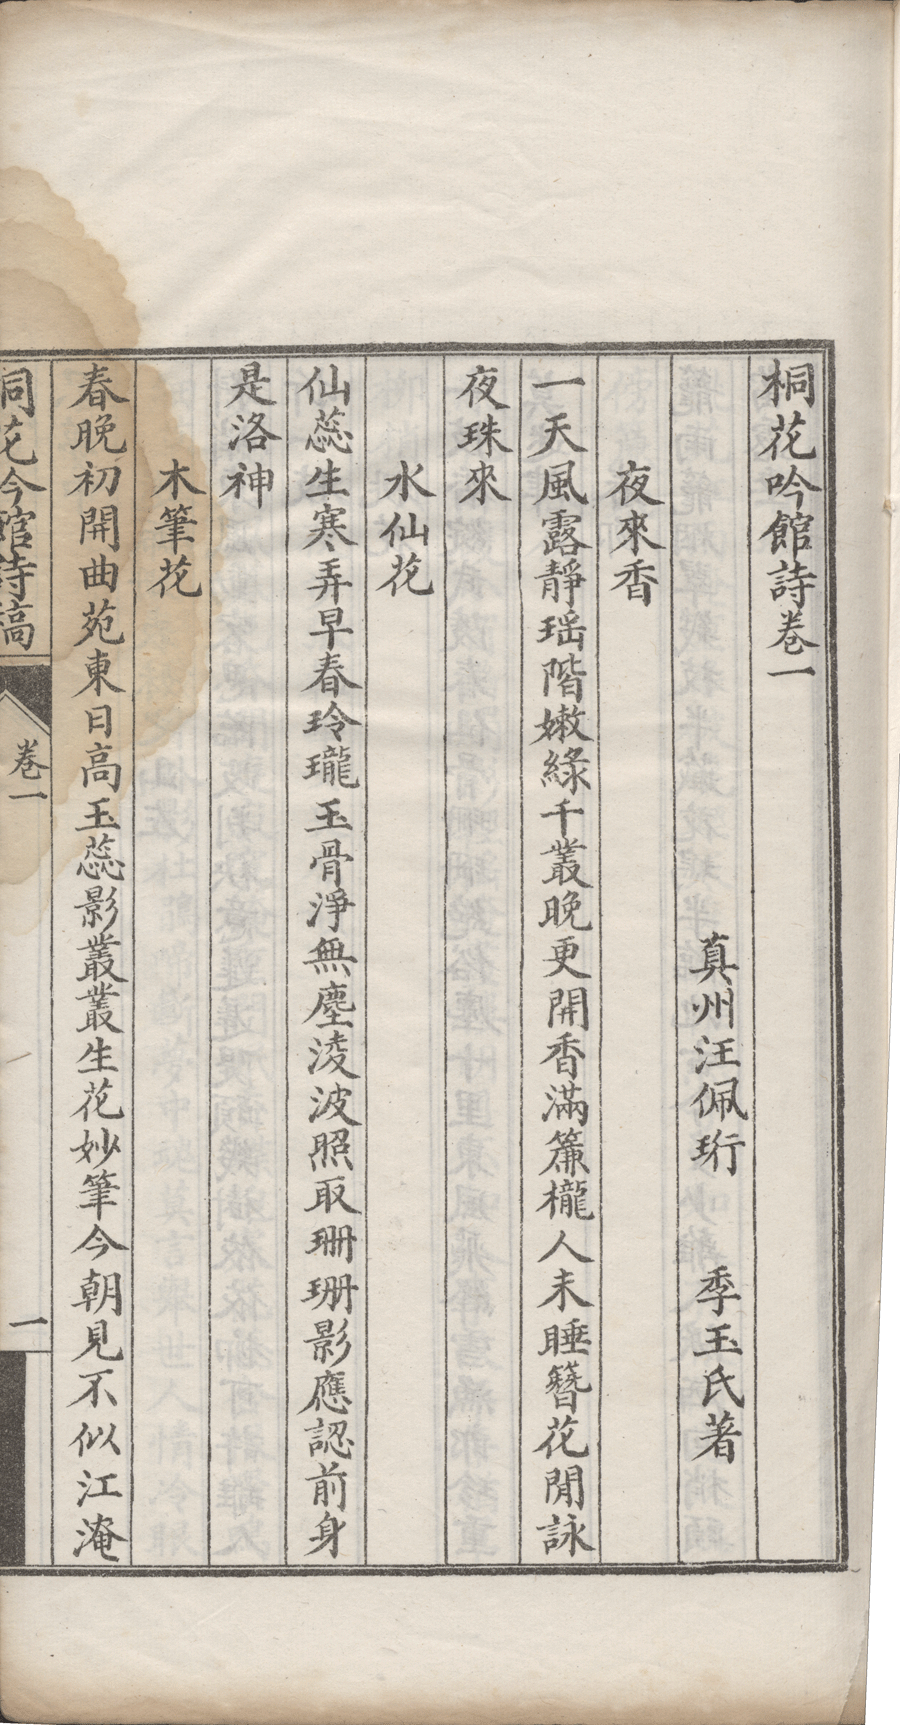 桐花吟館詩卷一
真州汪佩珩　季玉氏著
夜來香
一天風露靜瑶階嫩綠千叢晚更開香滿簾櫳人未睡簪花閒詠
夜珠來
水仙花
仙蕊生寒弄早春玲瓏玉骨淨無塵淩波照取珊珊影應認前身
是洛神
木筆花
春晚初開曲苑東日高玉蕊影叢叢生花妙筆今朝見不似江淹
桐花吟館詩稿
卷一
一